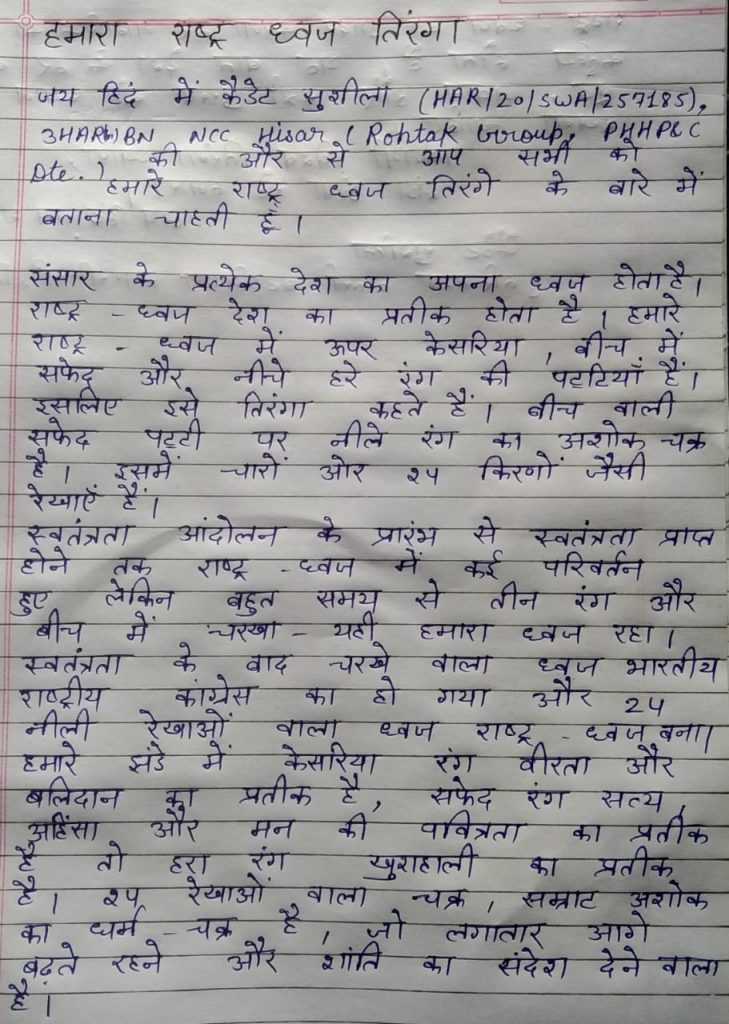 हमारा राष्ट्र ध्वज तिरंगा
जय हिंद में कैडेट सुशीला (HAR/20/SWA/257185),
3HAR(W)BN NCC Hisar (Rohtak Group, PHHP&C
Dte.) की और से आप सभी को
हमारे राष्ट्र ध्वज तिरंगे के बारे में
बताना चाहती हूँ।
संसार के प्रत्येक देश का अपना ध्वज होता है।
राष्ट्र - ध्वज देश का प्रतीक होता है। हमारे
राष्ट्र - ध्वज में ऊपर केसरिया, बीच में
सफेद और नीचे हरे रंग की पट्टियाँ हैं।
इसलिए इसे तिरंगा कहते हैं। बीच वाली
सफेद पट्टी पर नीले रंग का अशोक चक्र
है। इसमें चारों ओर २५ किरणों जैसी
रेखाएँ हैं।
स्वतंत्रता आंदोलन के प्रारंभ से स्वतंत्रता प्राप्त
होने तक राष्ट्र - ध्वज में कई परिवर्तन
हुए लेकिन बहुत समय से तीन रंग और
बीच में चरखा - यही हमारा ध्वज रहा।
स्वतंत्रता के वाद चरखे वाला ध्वज भारतीय
राष्ट्रीय कांग्रेस का हो गया और 24
नीली रेखाओं वाला ध्वज राष्ट्र - ध्वज बना।
हमारे झंडे में केसरिया रंग वीरता और
बलिदान का प्रतीक है, सफेद रंग सत्य,
अहिंसा और मन की पवित्रता का प्रतीक
है तो हरा रंग खुशहाली का प्रतीक
है। २५ रेखाओं वाला चक्र, सम्राट अशोक
का धर्म - चक्र है, जो लगातार आगे
बढ़ते रहने और शांति का संदेश देने वाला
है।